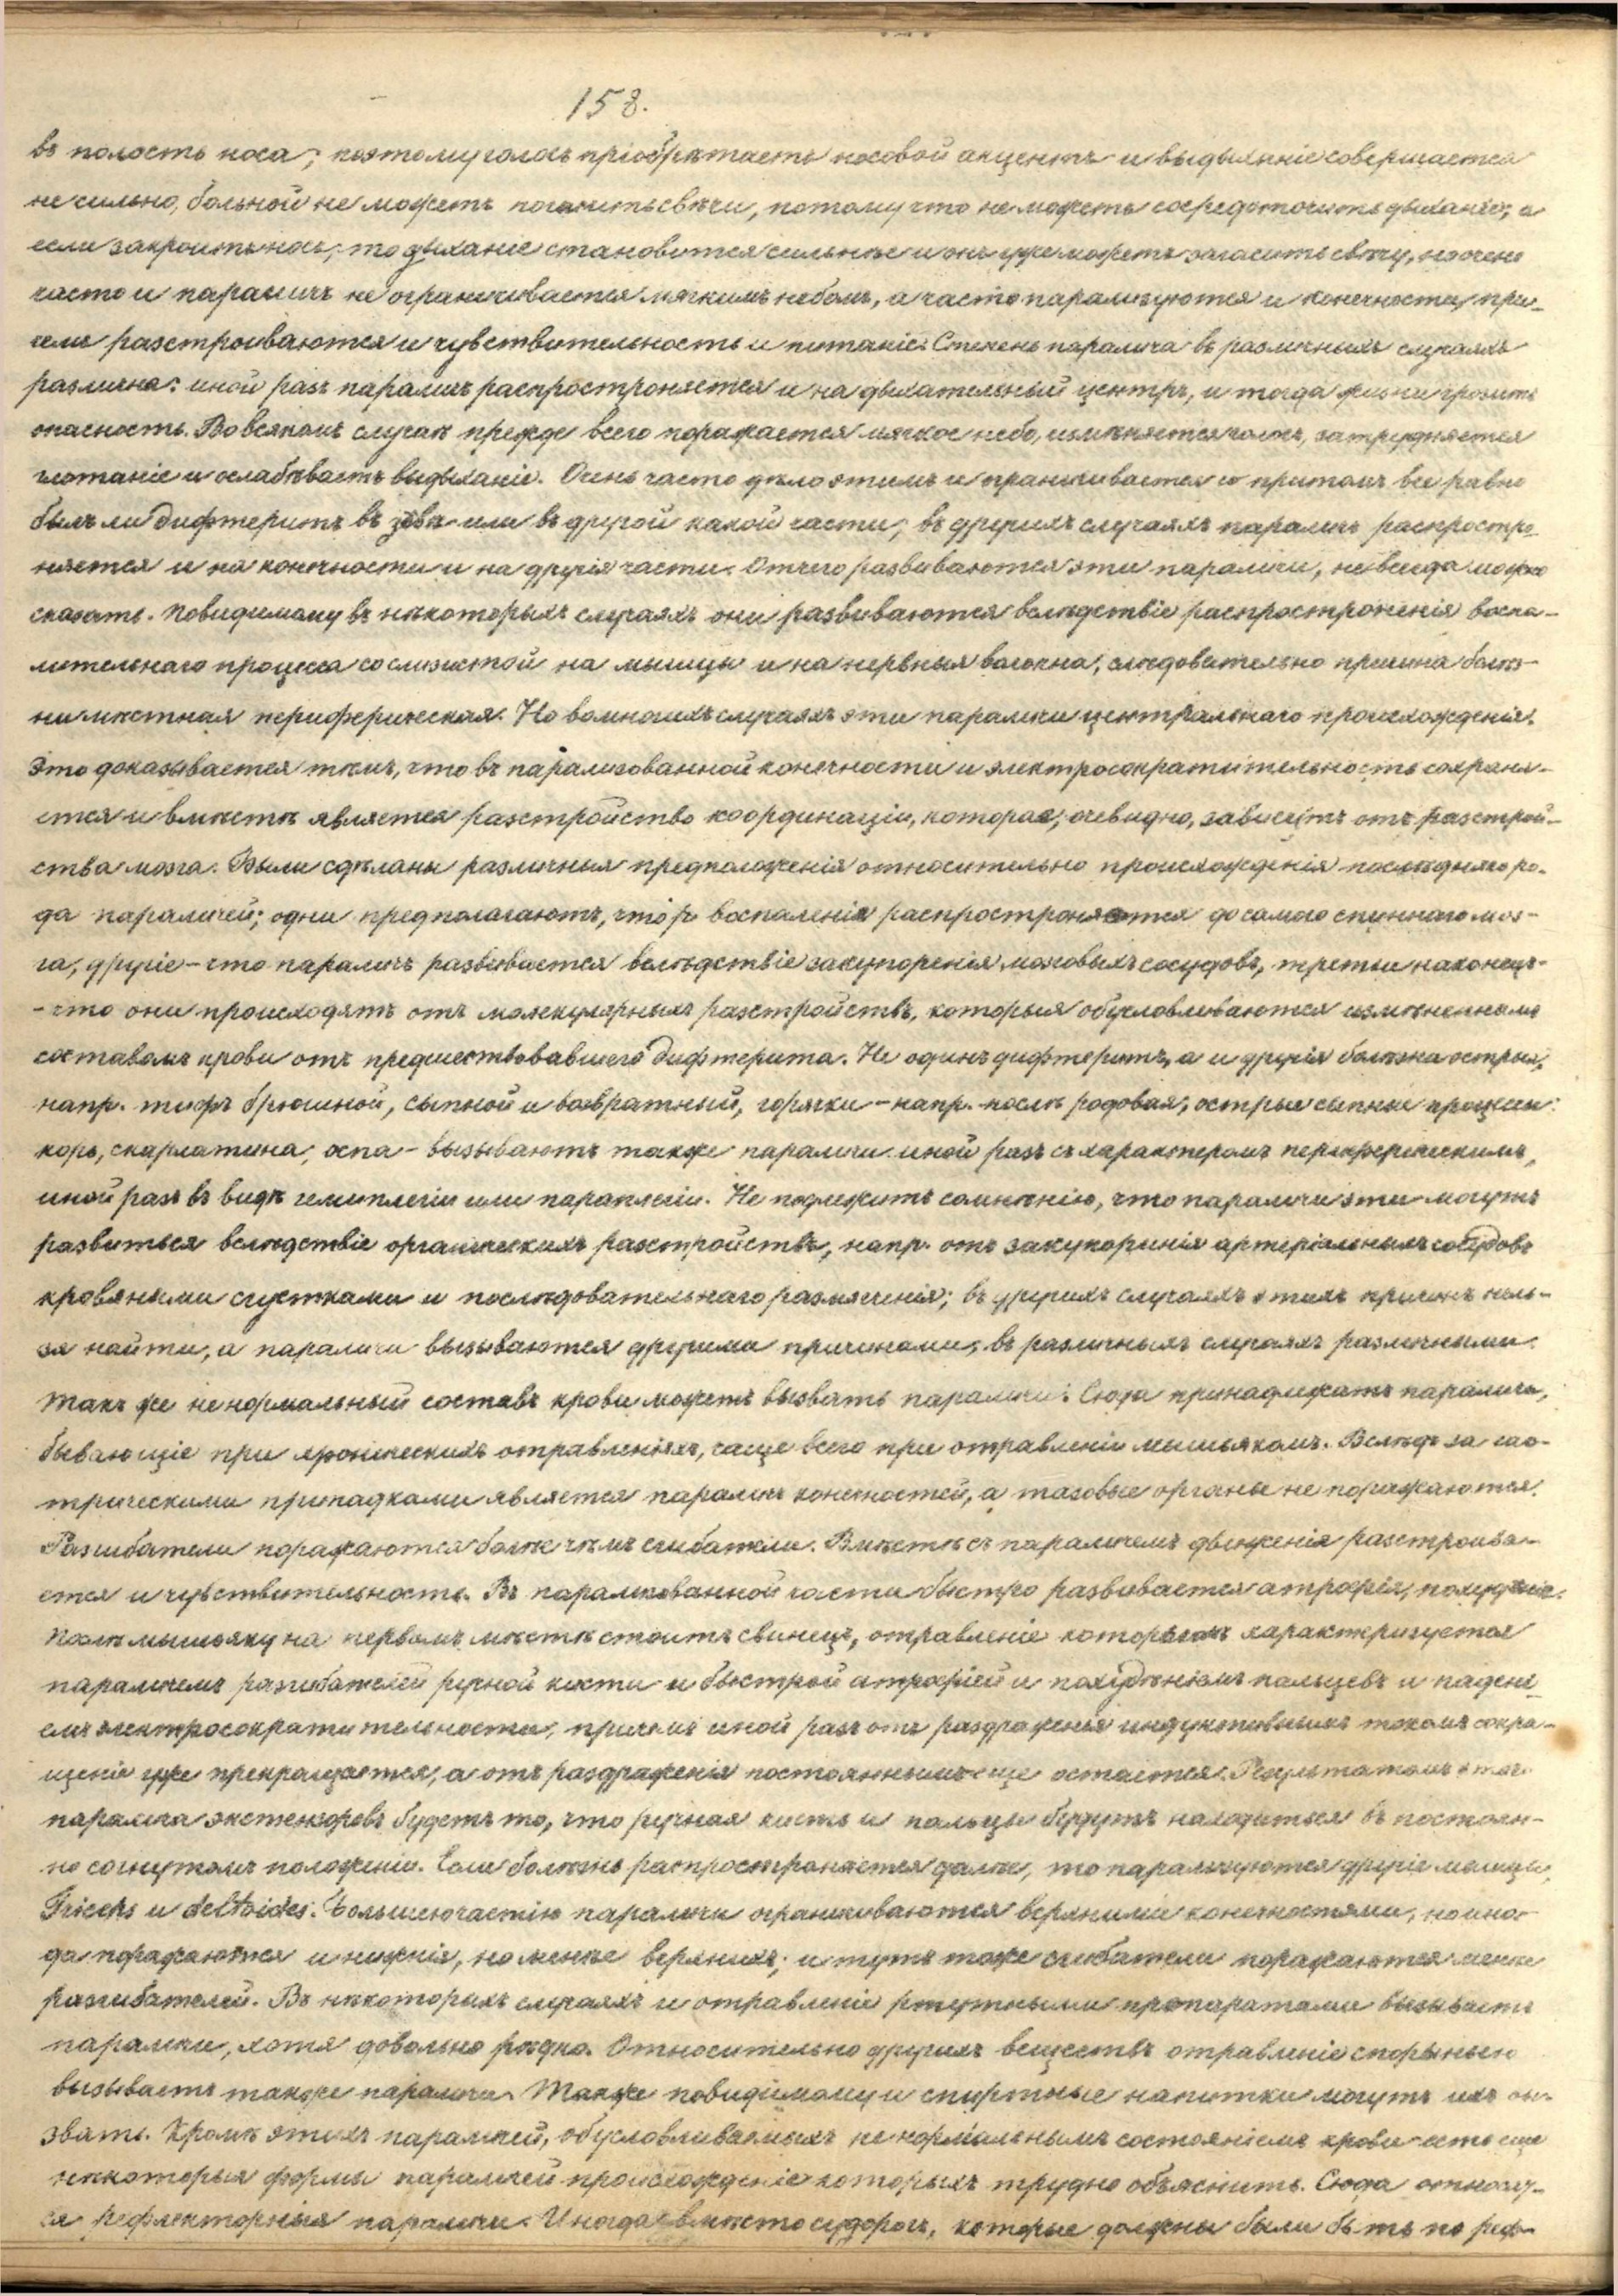 158.
въ полость носа; поэтому голосъ пріобрѣтаетъ носовой акцентъ и выдыханіе совершается
не сильно, больной не можетъ погасить свѣчи, потому что не можетъ сосредоточить дыханіе; а
если закроить носъ, то дыханіе становится сильнѣе и онъ уже можетъ загасить свѣчу, но очень
часто и параличъ не ограничивается мягкимъ небомъ, а часто парализуются и конечности, при-
чемъ разстроиваются и чувствительность и питаніе. Степень паралича въ различныхъ случаяхъ
различна: иной разъ параличъ распростроняется и на дыхательный центръ, и тогда жизни грозитъ
опасность. Во всякомъ случаѣ прежде всего поражается мягкое небо, измѣняется голосъ, затрудняется
глотаніе и ослабѣваетъ выдыханіе. Очень часто дѣло этимъ и ограничивается и притомъ все равно
былъ ли дифтеритъ въ зѣвѣ или въ другой какой части; въ другихъ случаяхъ параличъ распростре-
няется и на конечности и на другія части. Отчего развиваются эти параличи, не всегда можно
сказать. Повидимому въ нѣкоторыхъ случаяхъ они развиваются вслѣдствіе распростроненія воспа-
лительнаго процесса со слизистой на мышцы и на нервныя волокна, слѣдовательно причина болѣз-
ни мѣстная периферическая. Но во многихъ случаяхъ эти параличи центральнаго происхожденія.
Это доказывается тѣмъ, что въ парализованной конечности и электросократительность сохраня-
ется и вмѣстѣ является разстройство координаціи, которая, очевидно, зависитъ отъ разстрой-
ства мозга. Были сдѣланы различныя предположенія относительно происхожденія послѣдняго ро-
да параличей; одни предполагаютъ, что воспаленія распростроняются до самого спиннаго моз-
га, другіе - что параличъ развивается вслѣдствіе закупоренія мозговыхъ сосудовъ, третьи наконецъ-
- что они происходятъ отъ молекулярныхъ разстройствъ, которыя обусловливаются измѣненнымъ
составомъ крови отъ предшествовавшего дифтерита. Не одинъ дифтеритъ, а и другія болѣзни острыя,
напр. тифъ брюшной, сыпной и возвратный, горячки - напр. послѣ родовая, острые сыпные процессы:
корь, скарлатина, оспа - вызываютъ также параличи иной разъ съ характеромъ периферическимъ,
иной разъ въ видѣ гемиплегіи или параплегіи. Не подлежитъ сомнѣнію, что параличи эти могутъ
развиться вслѣдствіе органическихъ разстройствъ, напр. отъ закупоринія артеріальныхъ сосудовъ
кровяными сгустками и послѣдовательнаго размягченія; въ другихъ случаяхъ этихъ причинъ нель-
зя найти, а параличи вызываются другими причинами, въ различныхъ случаяхъ различными.
Такъ же не нормальный составъ крови можетъ вызвать параличи. Сюда принадлежатъ параличи,
бывающіе при хроническихъ отравленіяхъ, чаще всего при отравленіи мышьякомъ. Вслѣдъ за гас-
трическими припадками является параличъ конечностей, а тазовые органы не поражаются.
Разгибатели поражаются болѣе чѣмъ сгибатели. Вмѣстѣ съ параличемъ движенія разстроива-
ется и чувствительность. Въ парализованной части быстро развивается атрофія, похуденіе.
Послѣ мышьяку на первомъ мѣстѣ стоитъ свинецъ, отравленіе которымъ характеризуется
параличемъ разгибателей ручной кости и быстрой атрофіей и похуденіемъ пальцевъ и падені-
емъ электросократительности, причемъ иной разъ отъ раздраженія индуктивнымъ токомъ сокра-
щеніе уже прекращается, а отъ раздраженія постояннымъ еще остается. Результатомъ этого
паралича экстензоровъ будетъ то, что ручная кисть и пальцы будутъ находиться въ постоян-
но согнутомъ положеніи. Если болѣзнь распространяется далѣе, то парализуются другіе мышцы,
Triceps и deltoides. Большею частію параличи ограничиваются верхними конечностями, но иног-
да поражаются и нижнія, но менѣе верхнихъ; и тутъ тоже сгибатели поражаются менѣе
разгибателей. Въ нѣкоторыхъ случаяхъ и отравленіе ртутными препаратами вызываетъ
параличи, хотя довольно рѣдко. Относительно другихъ веществъ отравленіе спорынью
вызываетъ также параличи. Также повидимому и спиртные напитки могутъ ихъ вы-
звать. Кромѣ этихъ параличей, обусловливаемыхъ не нормальнымъ состояніемъ крови есть еще
нѣкоторыя формы параличей происхожденіе которыхъ трудно объяснить. Сюда относят-
ся рефлекторныя параличи. Иногда вмѣсто судорогъ, которые должны были быть по реф-